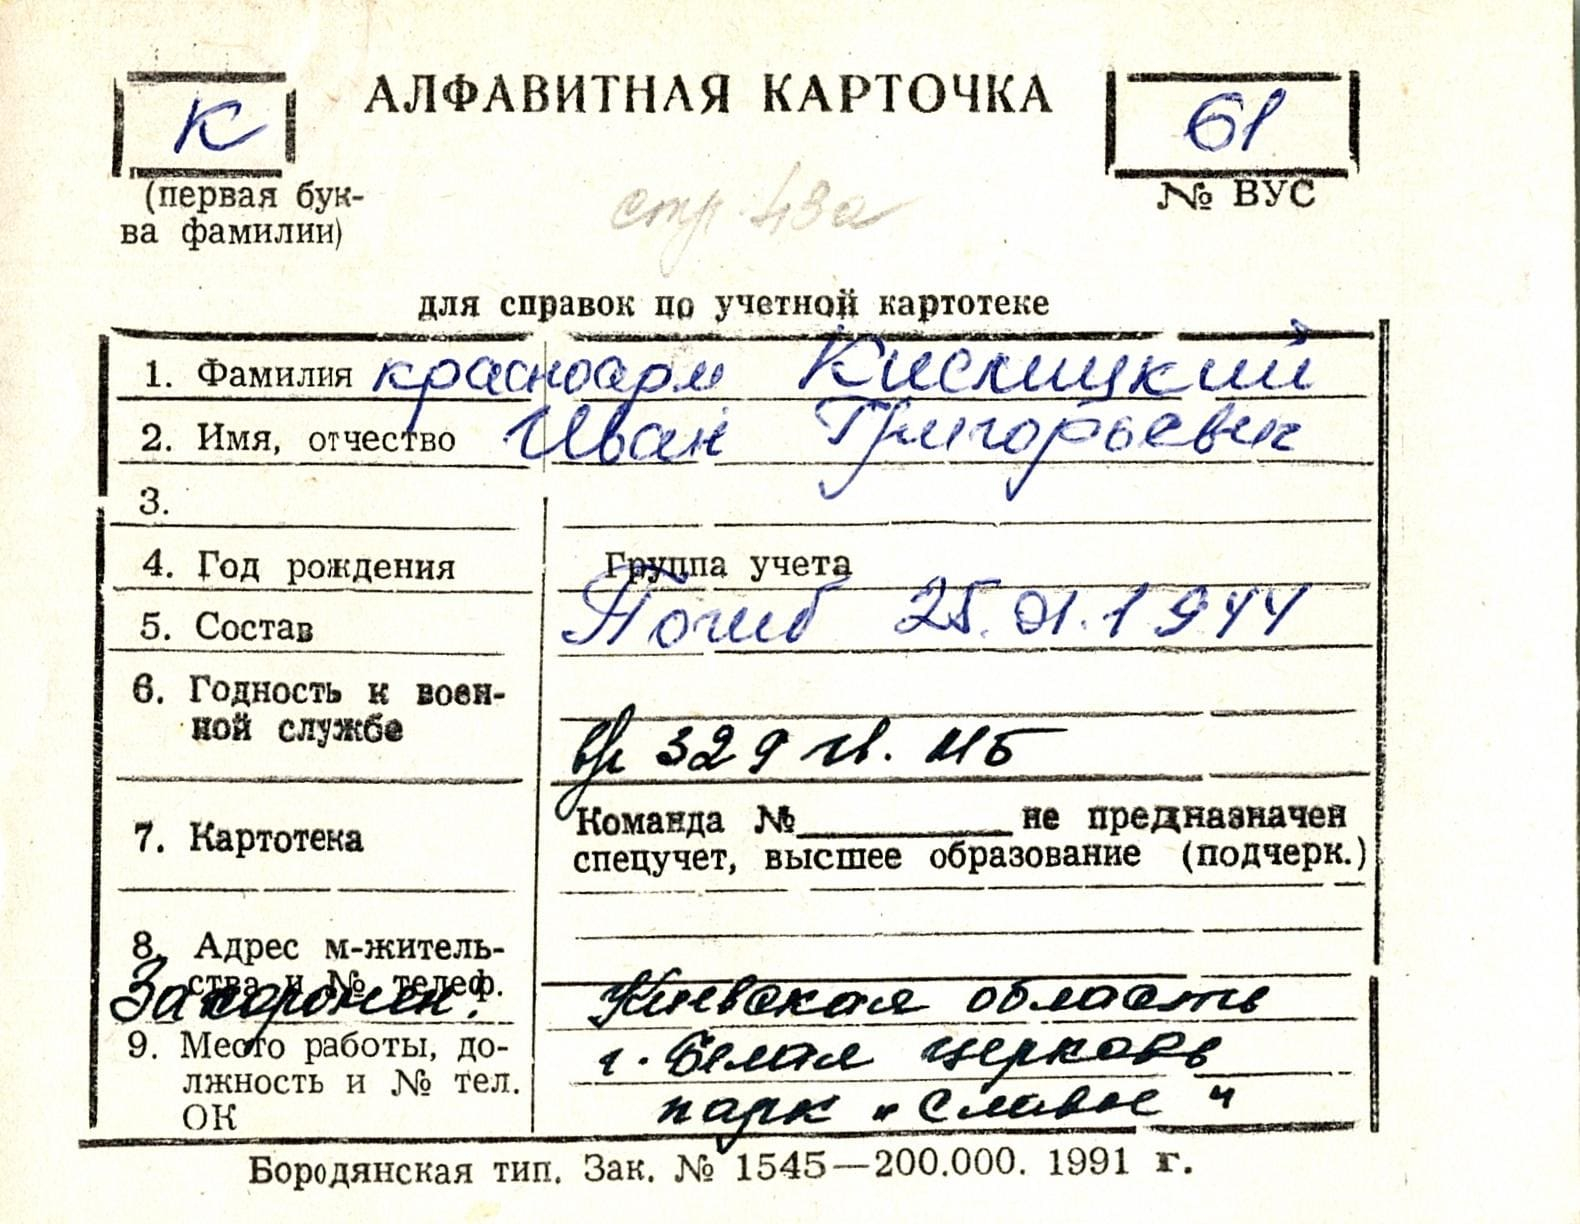 АЛФАВИТНАЯ КАРТОЧКА
К
61
(первая бук-
ва фамилии)
№ ВУС
стр. 43а
для справок по учетной картотеке
1. Фамилия красноарм Кислицкий
2. Имя, отчество Иван Григорьевич
3.
4. Год рождения Группа учета
5. Состав Погиб 25.01.1944
6. Годность к воен-
ной службе
329 гв. МБ
7. Картотека
Команда №________не предназначен
спецучет, высшее образование (подчерк.)
8. Адрес м-житель-
ства и № телеф.
Захоронен: Киевская область
9. Место работы, до-
лжность и № тел.
ОК
г. Белая церковь
парк "Славы"
Бородянская тип. Зак. № 1545—200.000. 1991 г.